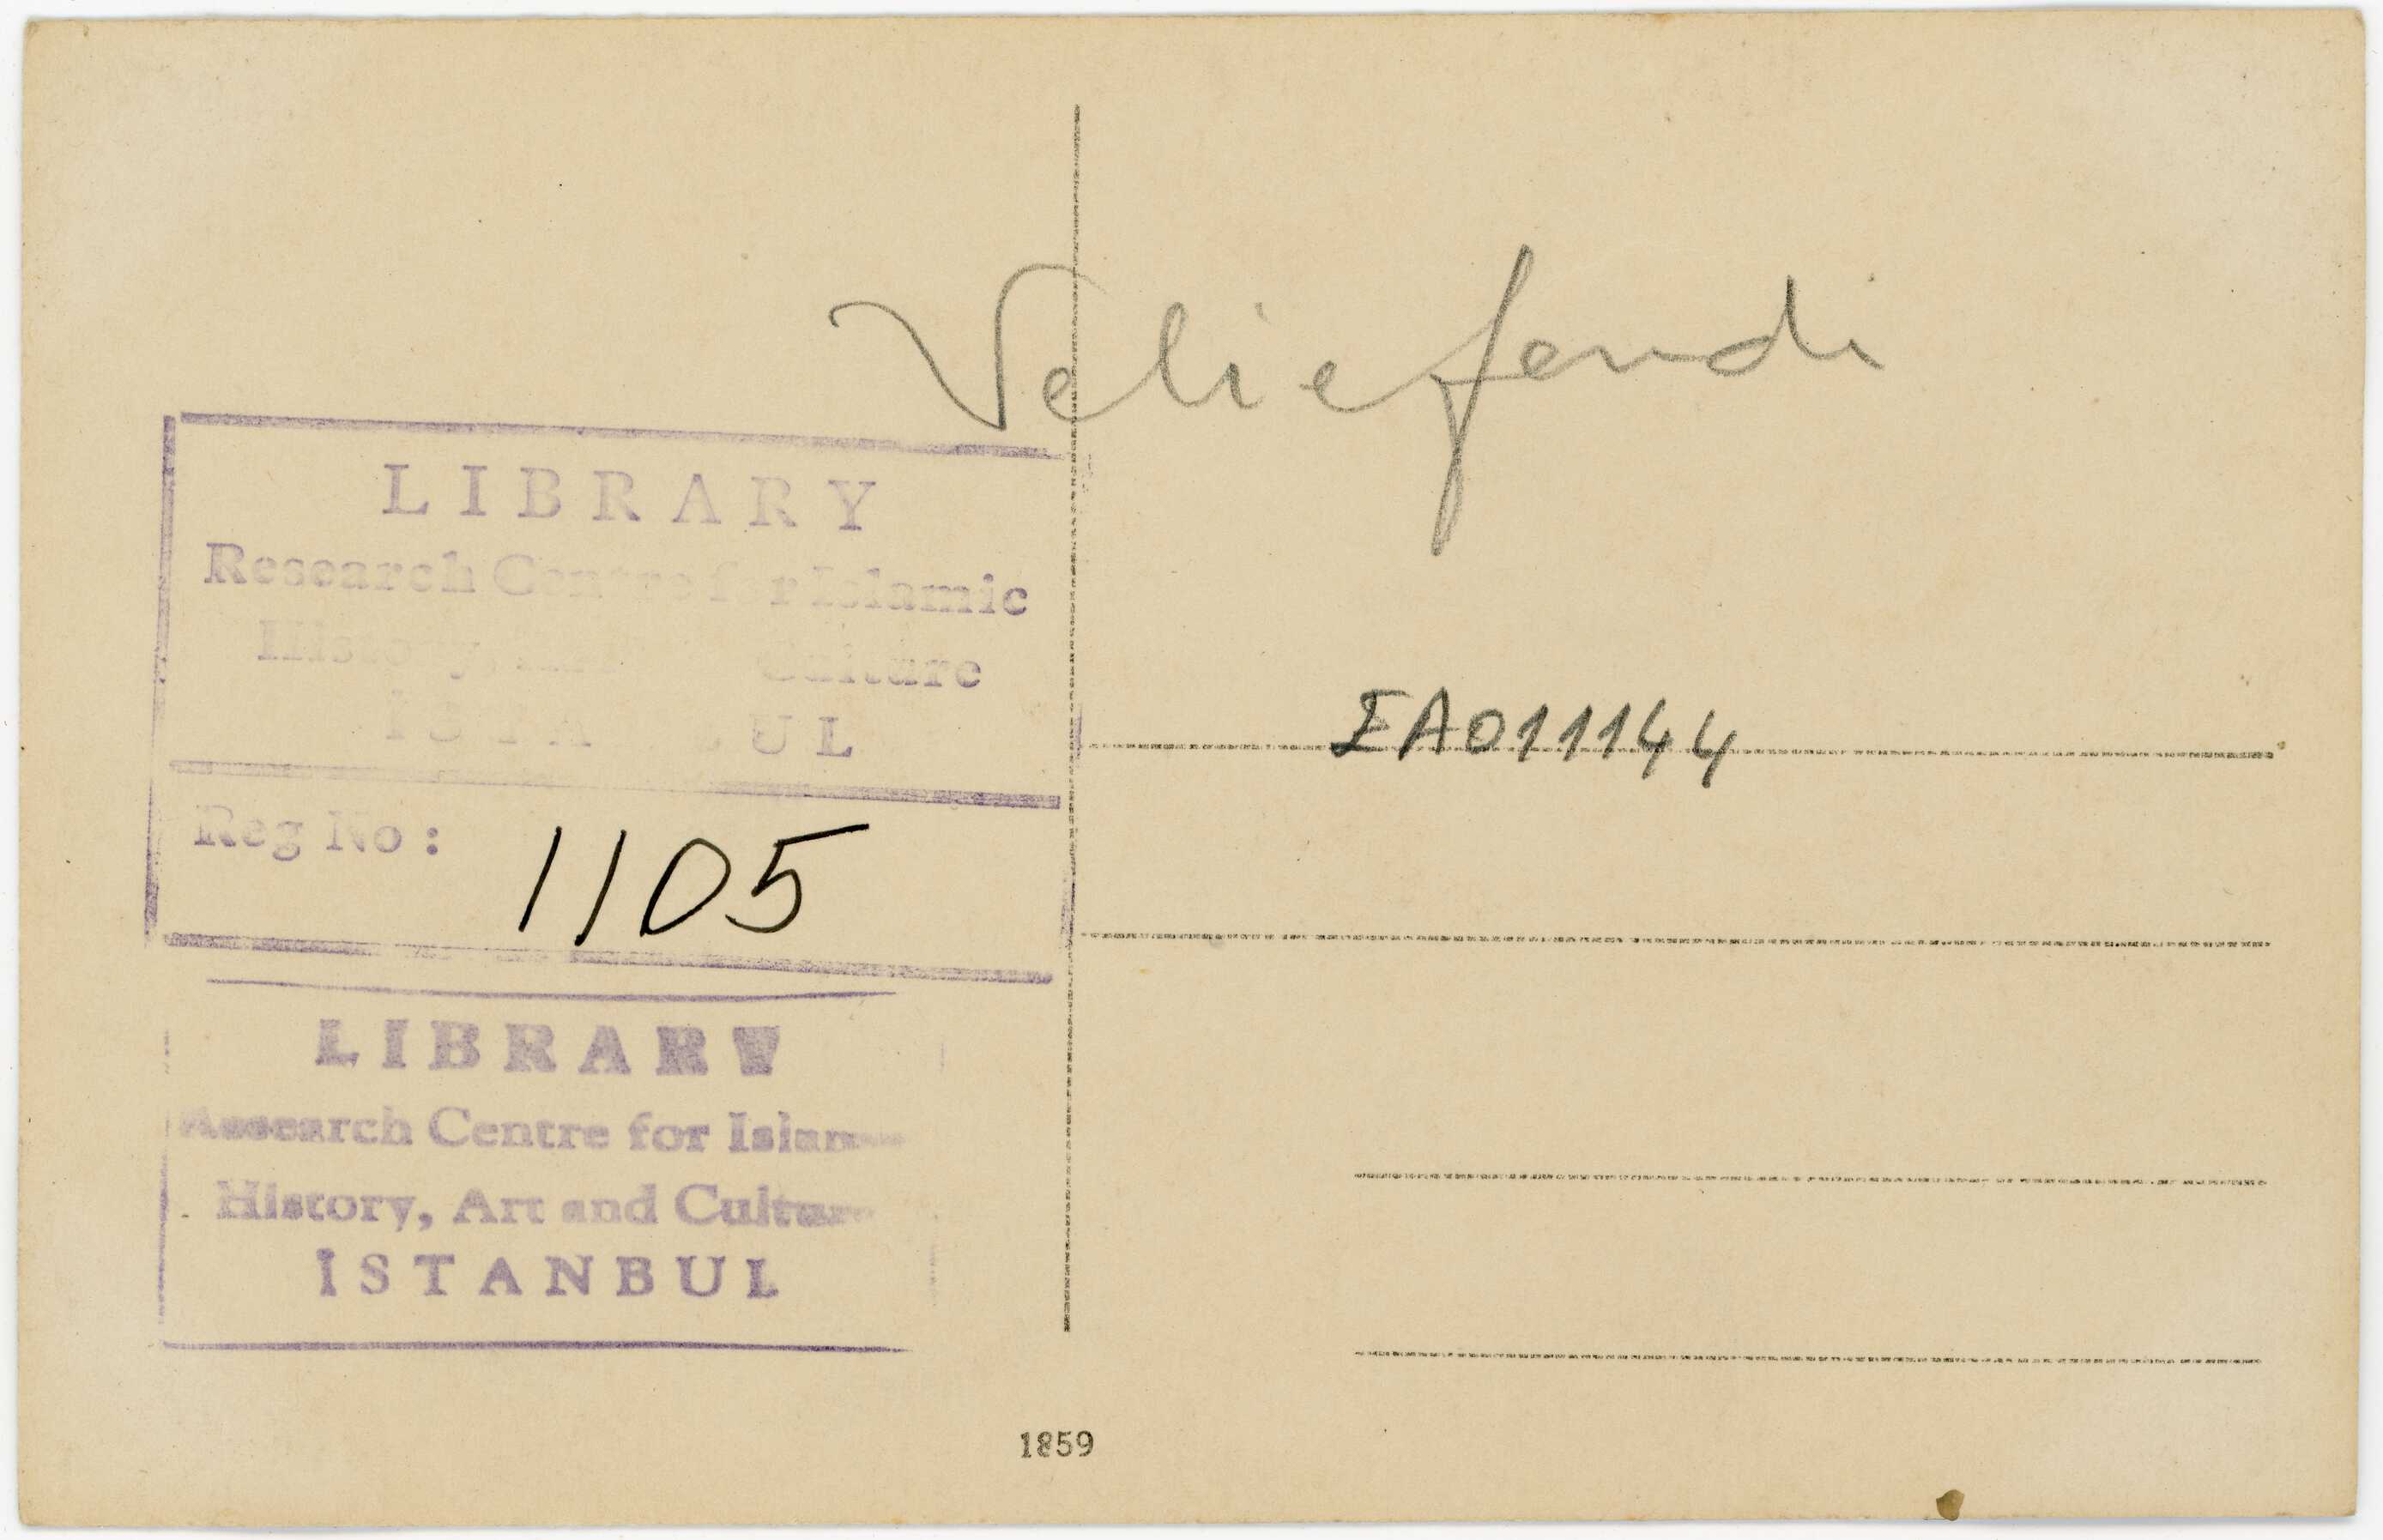 Veliefendi
LIBRARY
Research Centre for Islamic
History, Culture
UL
Reg No:
1105
IA011144
LIBRARY
Research Centre for Islam
History, Art and Culture
İSTANBUL
1859